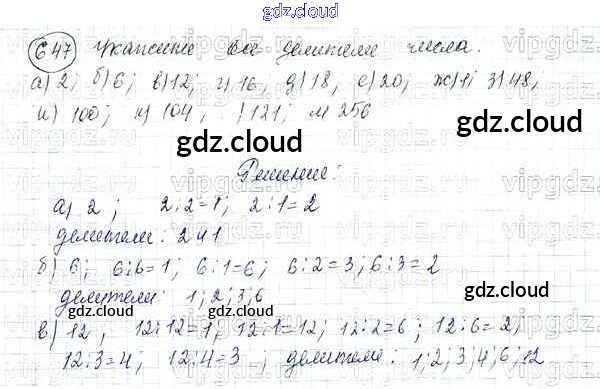 gdz.cloud
647 Укажите все делители числа.
а) 2; б) 6; в) 12; г) 16; д) 18; е) 20; ж) 1; з) 48,
и) 100; к) 104, ) 121; м 256
gdz.cloud gdz.cloud
Решение:
а) 2; 2:2=1; 2:1=2
делители: 2 и 1
б) 6; 6:6=1; 6:1=6; 6:2=3; 6:3=2
gdz.cloud gdz.cloud
делители: 1; 2; 3; 6
в) 12, 12:12=1, 12:1=12; 12:2=6; 12:6=2;
12:3=4; 12:4=3; делители: 1; 2; 3; 4; 6; 12
gdz.cloud